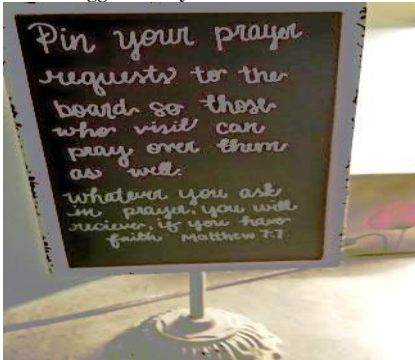 Pin your prayer
requests to the
board so those
who visit can
pray over them
as well.
whatever you ask
in prayer, you will
recieve, if you have
faith Matthew 7:7